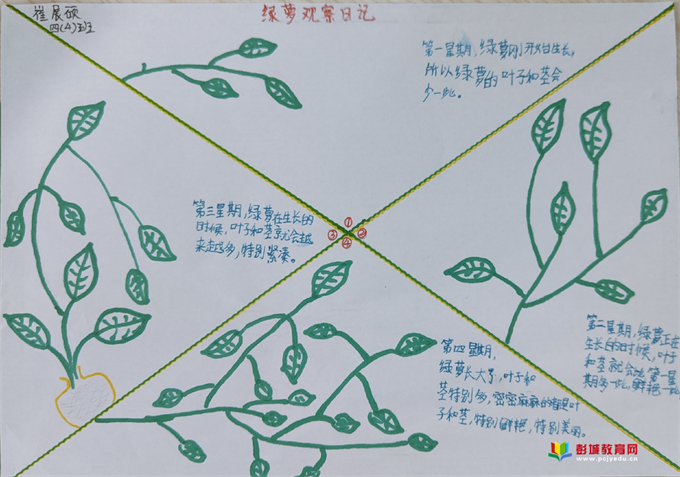 绿萝观察日记
崔展硕
四(4)班
第一星期,绿萝刚开始生长,
所以绿萝的叶子和茎会
少一些。
①
②
③
④
第二星期,绿萝正在
生长的时候,叶子
和茎就会比第一星
期多一些,鲜艳一些
第三星期,绿萝在生长的
时候,叶子和茎就会越
来越多,特别紧凑。
第四星期,
绿萝长大了,叶子和
茎特别多,密密麻麻的都是叶
子和茎,特别鲜艳,特别美丽。
彭城教育网
www.pcjyedu.cn